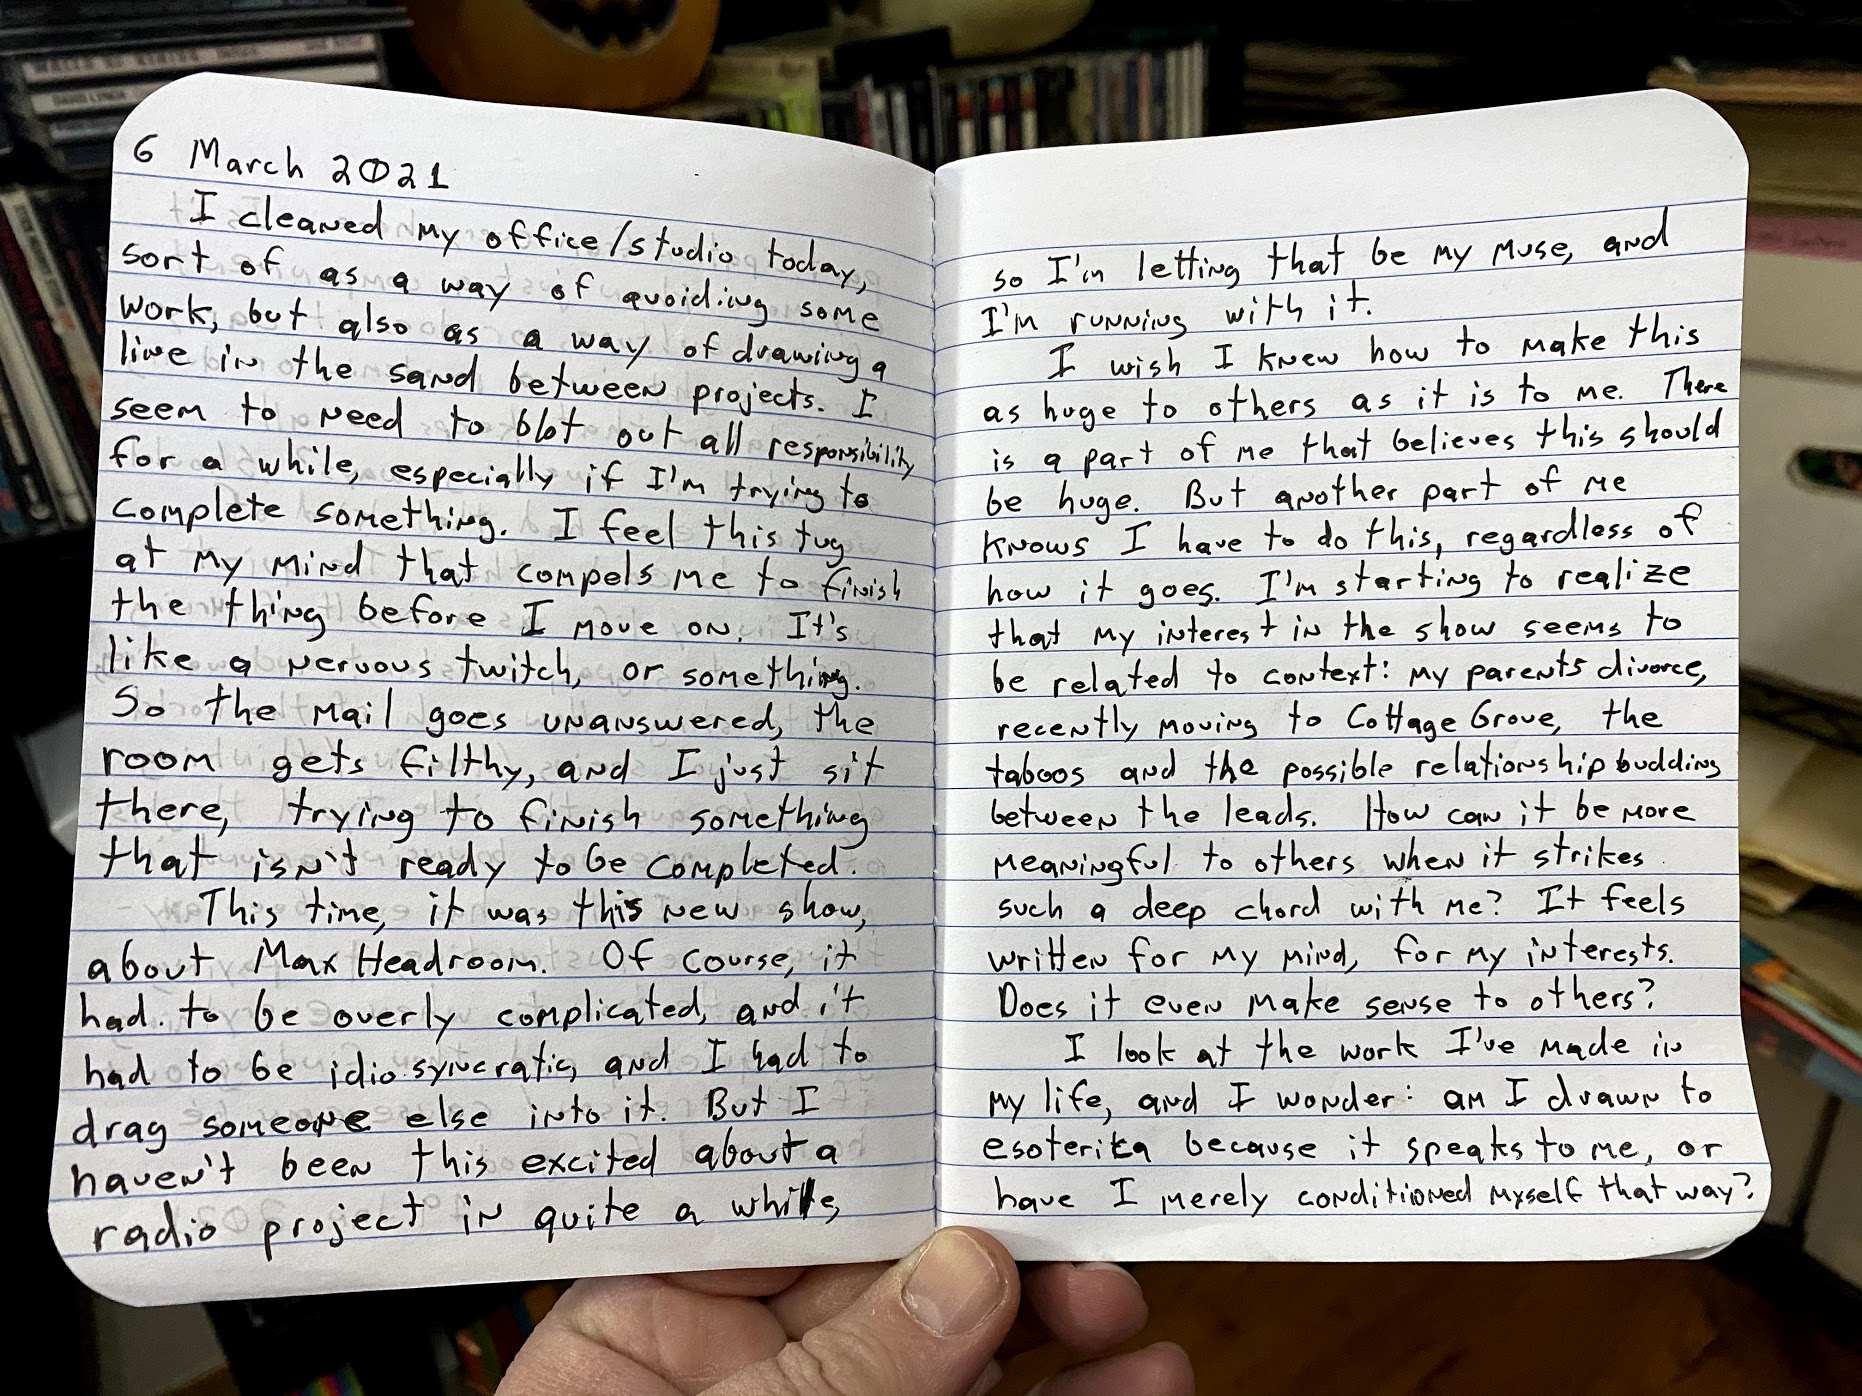 6 March 2021
I cleaned my office/studio today,
sort of as a way of avoiding some
work, but also as a way of drawing a
line in the sand between projects. I
seem to need to blot out all responsibility
for a while, especially if I'm trying to
complete something. I feel this tug
at my mind that compels me to finish
the thing before I move on. It's
like a nervous twitch, or something.
So the mail goes unanswered, the
room gets filthy, and I just sit
there, trying to finish something
that isn't ready to be completed.
This time, it was this new show,
about Max Headroom. Of course, it
had to be overly complicated, and it
had to be idiosyncratic, and I had to
drag someone else into it. But I
haven't been this excited about a
radio project in quite a while,
so I'm letting that be my muse, and
I'm running with it.
I wish I knew how to make this
as huge to others as it is to me. There
is a part of me that believes this should
be huge. But another part of me
knows I have to do this, regardless of
how it goes. I'm starting to realize
that my interest in the show seems to
be related to context: my parents divorce,
recently moving to Cottage Grove, the
taboos and the possible relationship budding
between the leads. How can it be more
meaningful to others when it strikes
such a deep chord with me? It feels
written for my mind, for my interests.
Does it even make sense to others?
I look at the work I've made in
my life, and I wonder: am I drawn to
esoterika because it speaks to me, or
have I merely conditioned myself that way?
DAVID LYNCH